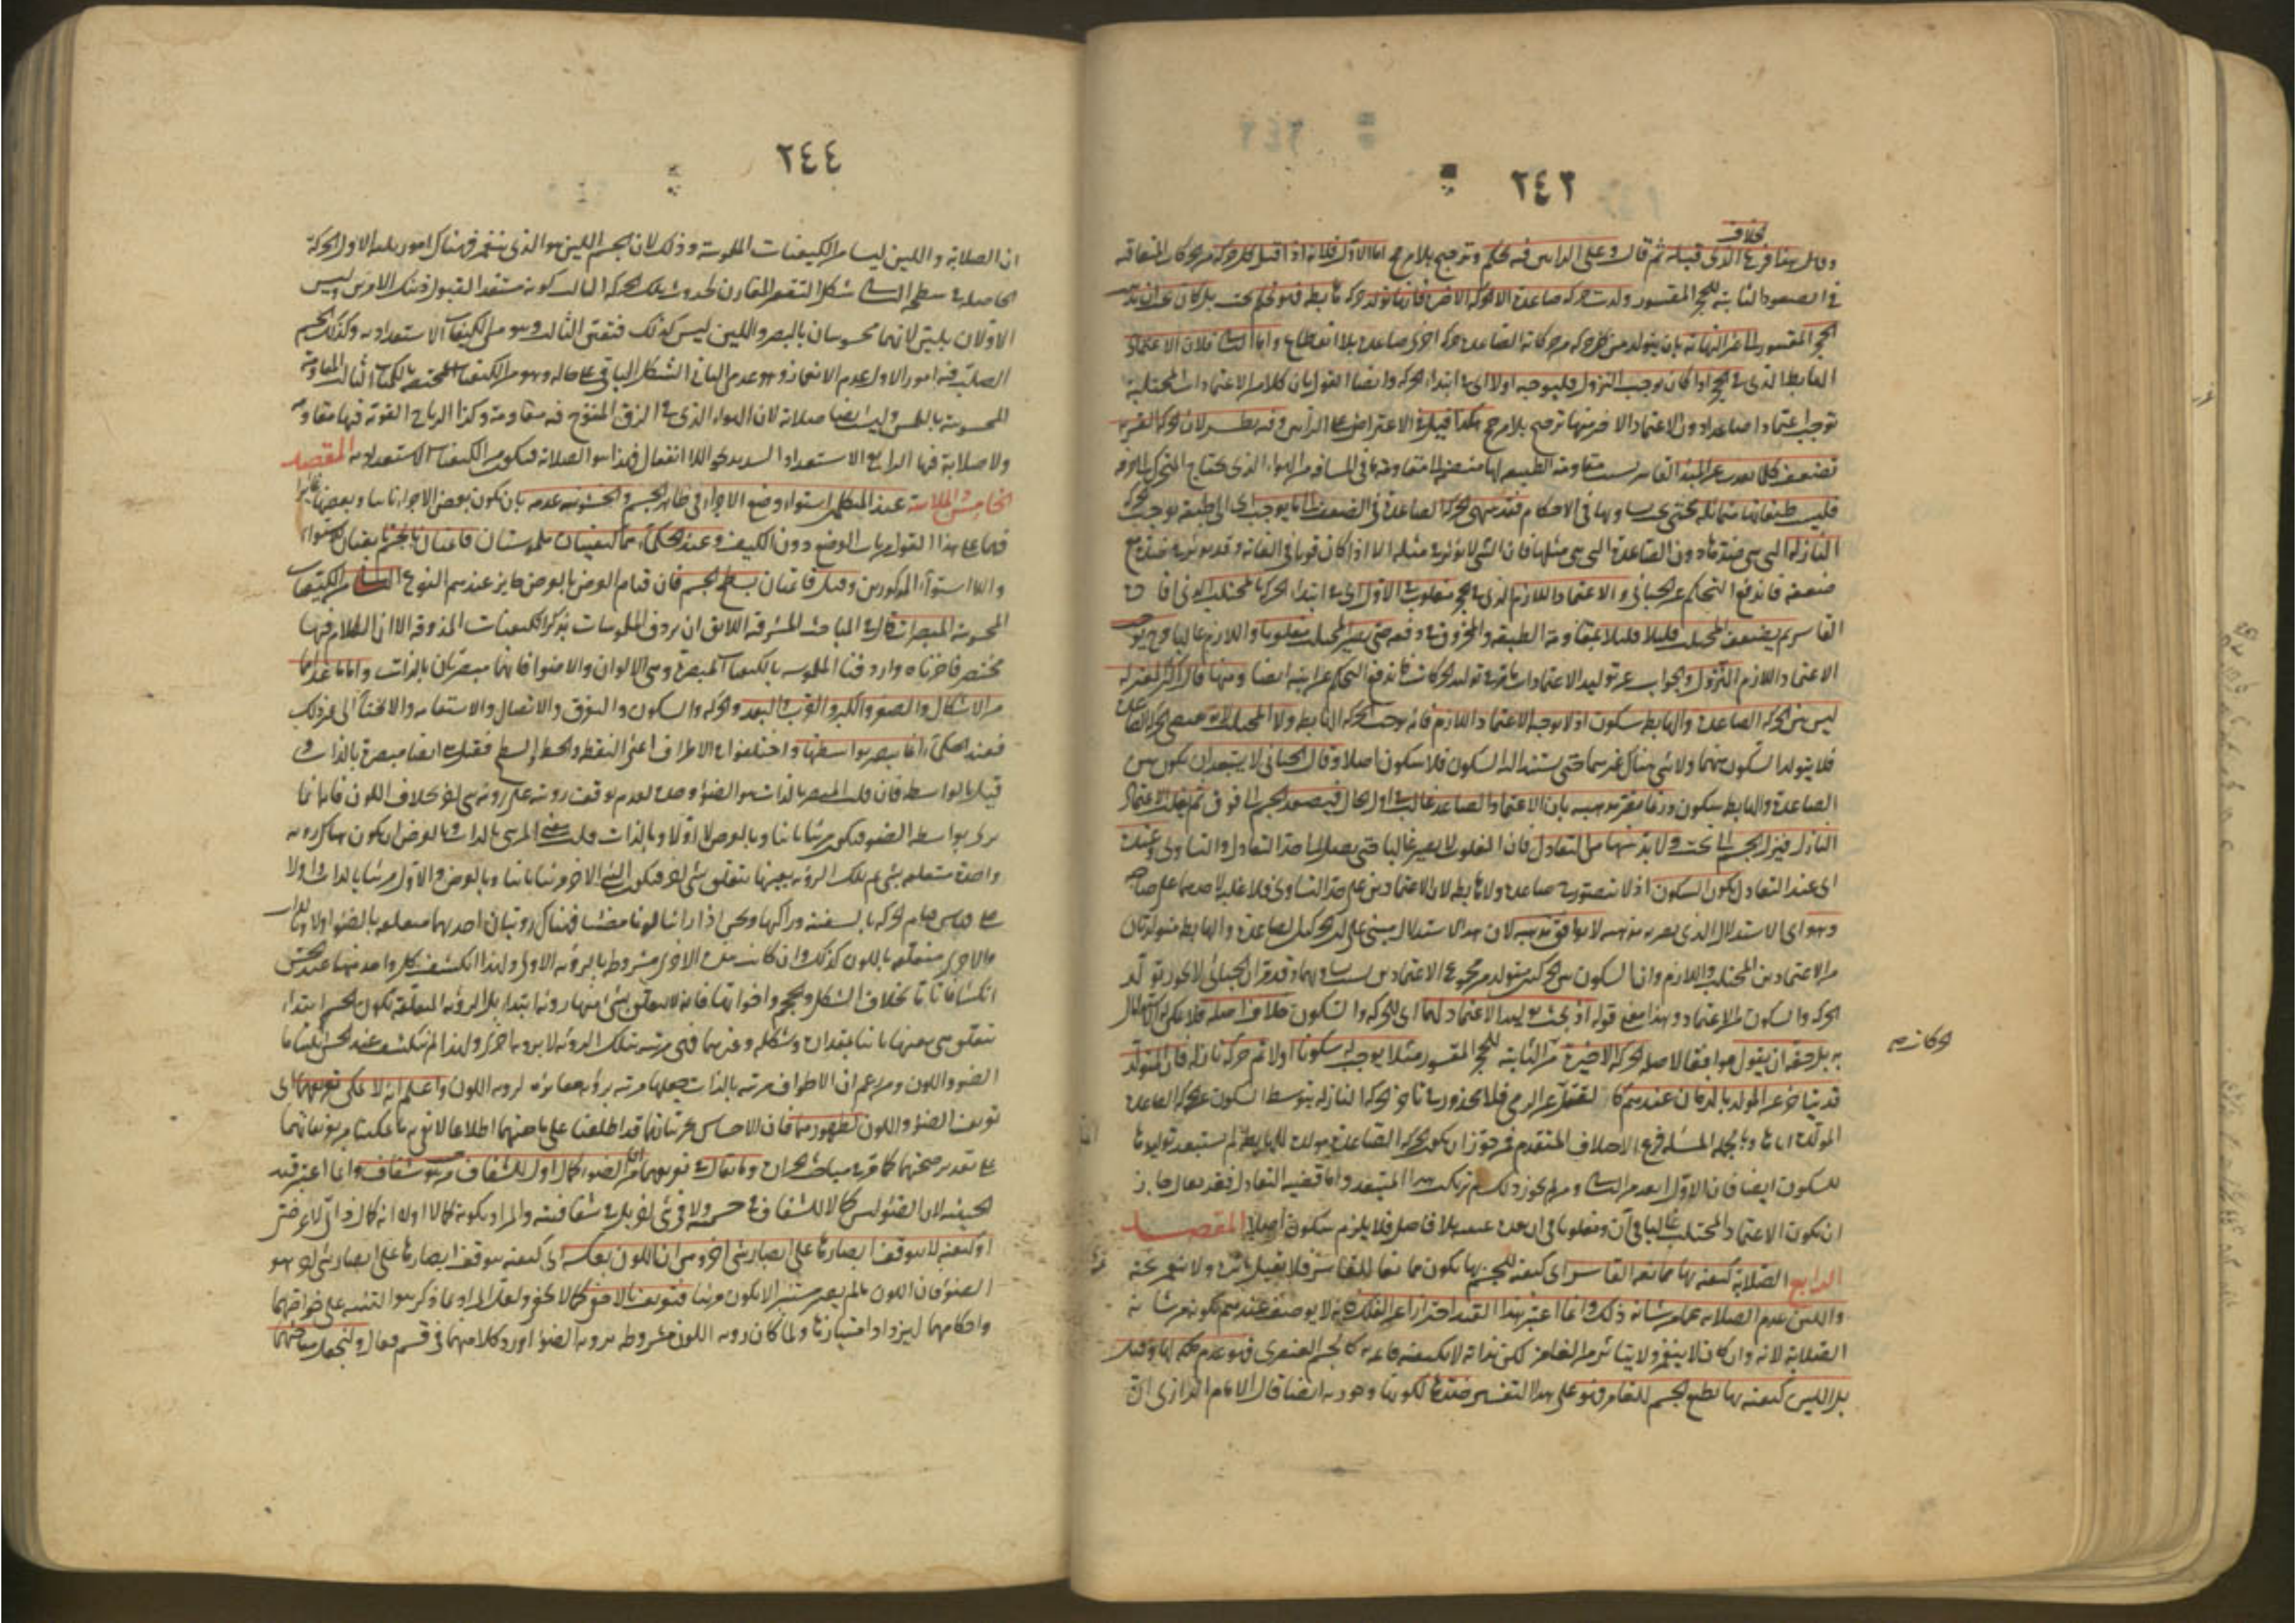 ٢٤٣
بخلاف
الذي قبله ثم قال وعلى الرأيين ففيه تحكم وترجيح بلا مرجح اما الاول فلانه اذا اقتضى كل حركة من الحركات المتعاقبة
في الصعود الثابتة للحجر المقسور ولدت حركة صاعدة الا الحركة الاخيرة فانها تولد حركة هابطة فهو تحكم بحت بل كان
الحجر المقسور الى غير النهاية بان يتولد من كل حركة من حركاته الصاعدة حركة اخرى صاعدة بلا انقطاع واما الثاني فلان الاعتماد
الهابط الذي في الحجر اذا كان يوجب النزول فليوجبه اولا اي في ابتداء الحركة وايضا القول بان كلا من الاعتمادات المجتلبة
توجب اعتمادا صاعدا دون الاعتماد الاخير منها ترجيح بلا مرجح هكذا قيل في الاعتراض على الرأيين وفيه نظر لان الحركة القسرية
تضعف كلما بعدت عن المبدأ القاسر بسبب مقاومة الطبيعة لها منضمة الى مقاومة ما في المسافة من الهواء الذي يحتاج المتحرك الى خرقه
فليست طبقاتها متماثلة حتى يجب تساويها في الاحكام فقد ينتهي الحركة الصاعدة في الضعف الى ما يوجب
النازلة التي هي ضدها دون الصاعدة التي هي مثلها فان الشيء لا يؤثر في مثله الا اذا كان قويا في الغاية وقد يؤثر في ضده مع
ضعفه فاندفع التحكم عن الجبائي والاعتماد اللازم الذي في الحجر مغلوب في الاول اي في ابتداء الحركة بالمجتلب
القاسر ثم يضعف المجتلب قليلا قليلا بمقاومة الطبيعة والمخروق حتى يصير المجتلب مغلوبا واللازم غالبا
الاعتماد اللازم النزول والجواب عن توليد الاعتمادات فاندفع التحكم عن ابنه ايضا ومنها قال اكثر المعتزلة
ليس بين الحركة الصاعدة والهابطة سكون اذ لا يوجبه الاعتماد اللازم فانه يوجب الحركة الهابطة ولا المجتلب لانه يقتضي الحركة الصاعدة
فلا يتولد السكون منهما ولا شيء هناك غيرهما حتى يستند اليه السكون فلا سكون اصلا وقال الجبائي لا يستبعد ان يكون بين
الصاعدة والهابطة سكون وربما يقرر مذهبه بان الاعتماد الصاعد غالب في اول الحال فيصعد الجسم الى فوق ثم يغلب الاعتماد
النازل فينزل الجسم الى تحت ولا بد بينهما من التعادل فان المغلوب لا يصير غالبا حتى يصل الى حد التعادل والتساوي وعنده
اي عند التعادل يكون السكون اذ لا يتصور حركة صاعدة ولا هابطة لان الاعتمادين على حد التساوي فلا غلبة لاحدهما على صاحبه
وهو اي الاستدلال الذي يقرر به مذهبه لا يوافق مذهبه لان هذا الاستدلال مبني على ان الحركتين الصاعدة والهابطة متولدتان
من الاعتمادين المجتلب واللازم وان السكون بين الحركتين يتولد من مجموع الاعتمادين بسبب تساويهما وقد مر ان الجبائي لا يجوز تولد
الحركة والسكون من الاعتماد وهذا معنى قوله اذ ليس يوليد الاعتماد لهما اي للحركة والسكون خلاف اصله فلا يمكن الاستدلال
به بل حقه ان يقول موافقا لاصله الحركة الاخيرة من الثابتة للحجر المقسور مثلا يوجب له سكونا اولا ثم حركة نازلة فان المتولد
قد يتأخر عن المولد بالزمان عندهم كالقتل عن الرمي فلا محذور في تأخر الحركة النازلة بتوسط السكون عن الحركة الصاعدة
المولدة اياها وبالجملة المسألة فرع الاختلاف المتقدم فمن جوز ان يكون الحركة الصاعدة مولدة للهابطة لم يستبعد توليدها
للسكون ايضا فان الاول ابعد من الثاني ومن لم يجوز ذلك لم يرتكب هذا المستبعد واما قضية التعادل فقد يقال جاز
ان يكون الاعتماد المجتلب غالبا في آن ومغلوبا في آن بعده عقيبه بلا فاصل فلا يلزم سكون اصلا المقصد
الرابع الصلابة كيفية بها ممانعة القاسر اي كيفية للجسم بها يكون ممانعا للغامز فلا يقبل تأثيره ولا ينغمز تحته
واللين عدم الصلابة عما من شأنه ذلك وانما اعتبر هذا القيد احترازا عن الفلك فانه لا يوصف عندهم بكونه من شأنه
الصلابة لانه وان كان لا ينغمز ولا يتأثر من الغامز لكن بذاته لا بكيفية قائمة به كالجسم العنصري فهو عدم ملكة لها وقيل
بل اللين كيفية بها يطيع الجسم للغامز فهو على هذا التفسير ضدها لكونها وجودية ايضا قال الامام الرازي الحق
٢٤٤
ان الصلابة واللين ليسا من الكيفيات الملموسة وذلك لان الجسم اللين هو الذي ينغمز فهناك امور ثلثة الاول الحركة
الحاصلة في سطحه الثاني شكل التقعير المقارن لحدوث تلك الحركة الثالث كونه مستعدا لقبول ذينك الامرين وليس
الاولان بلين لانهما محسوسان بالبصر واللين ليس كذلك فتعين الثالث وهو من الكيفيات الاستعدادية وكذلك الجسم
الصلب فيه امور الاول عدم الانغماز وهو عدمي الثاني الشكل الباقي على حاله وهو من الكيفيات المختصة بالكميات الثالث المقاومة
المحسوسة باللمس وليست ايضا صلابة لان الهواء الذي في الزق المنفوخ فيه مقاومة وكذا الرياح القوية فيها مقاومة
ولا صلابة فيها الرابع الاستعداد الشديد نحو اللاانفعال فهذا هو الصلابة فيكون من الكيفيات الاستعدادية المقصد
الخامس الملاسة عند المتكلمين استواء وضع الاجزاء في ظاهر الجسم والخشونة عدمه بان يكون بعض الاجزاء ناتيا وبعضها غائرا
فهما على هذا القول من باب الوضع دون الكيف وعند الحكماء هما كيفيتان ملموستان قائمتان بالجسم تابعتان للاستواء
واللااستواء المذكورين وقيل قائمتان بسطح الجسم فان قيام العرض بالعرض جائز عندهم النوع الثاني من الكيفيات
المحسوسة المبصرات قال في المباحث المشرقية اللائق ان يردف الملموسات بذكر الكيفيات المذوقة الا ان الكلام فيها
مختصر فاخرناه واردفنا الملموسة بالكيفيات المبصرة وهي الالوان والاضواء فانهما مبصرتان بالذات واما ما عداهما
من الاشكال والصغر والكبر والقرب والبعد والحركة والسكون والتفرق والاتصال والاستقامة والانحناء الى غير ذلك
فعند الحكماء انما يبصر بواسطتها واختلفوا في الاطراف اعني النقطة والخط والسطح فقيل هي ايضا مبصرة بالذات و
قيل بالواسطة فان قلت المبصر بالذات هو الضوء وحده لعدم توقف رؤيته على رؤية شيء اخر بخلاف اللون فانه انما
يرى بواسطة الضوء فيكون مرئيا ثانيا وبالعرض لا اولا وبالذات قلت معنى المرئي بالذات وبالعرض ان يكون هناك رؤية
واحدة متعلقة بشيء ثم تلك الرؤية بعينها يتعلق بشيء اخر فيكون الشيء الاخر مرئيا ثانيا وبالعرض والاول مرئيا بالذات واولا
على قياس قيام الحركة بالسفينة وراكبها ونحن اذا رأينا لونا مضيئا فهناك رؤيتان احديهما متعلقة بالضوء اولا وبالذات
والاخرى متعلقة باللون كذلك وان كانت هذه الاخرى مشروطة بالرؤية الاولى ولهذا انكشف كل واحد منهما عند الحس
انكشافا تاما بخلاف الشكل والحجم واخواتهما فانه لا يتعلق بشيء منها رؤية ابتداء بل الرؤية المتعلقة بلون الجسم ابتداء
تتعلق هي بعينها ثانيا بمقداره وشكله وغيرهما فهي مرئية بتلك الرؤية لا برؤية اخرى ولهذا لم ينكشف عند الحس انكشافا
الضوء واللون ومن زعم ان الاطراف مرئية بالذات جعلها مرئية برؤية مغايرة لرؤية اللون واعلم انه لا يمكن تعريفهما اي
تعريف الضوء واللون لظهورهما فان الاحساس بجزئياتهما قد اطلعنا على ماهيتهما اطلاعا لا يفي به ما يمكننا من تعريفاتهما
على تقدير صحتها كما مر في مباحث الحرارة وما يقال في تعريفهما من ان الضوء كمال اول للشفاف من حيث هو شفاف وانما اعتبر قيد
الحيثية لان الضوء ليس كمالا للشفاف في جسميته ولا في شيء اخر بل في شفافيته والمراد بكونه كمالا اولا انه كمال ذاتي لا عرضي
او كيفية لا يتوقف ابصارها على ابصار شيء اخر ومن ان اللون بعكسه اي كيفية يتوقف ابصارها على ابصار شيء اخر هو
الضوء فان اللون ما لم يصر مستنيرا لا يكون مرئيا فتعريف بالاخفى كما لا يخفى ولعل المراد بما ذكر هو التنبيه على خواصهما
واحكامهما ليزداد امتيازها ولما كان رؤية اللون مشروطة برؤية الضوء اورد كلا منهما في قسم فقال ولنجعل مباحثهما